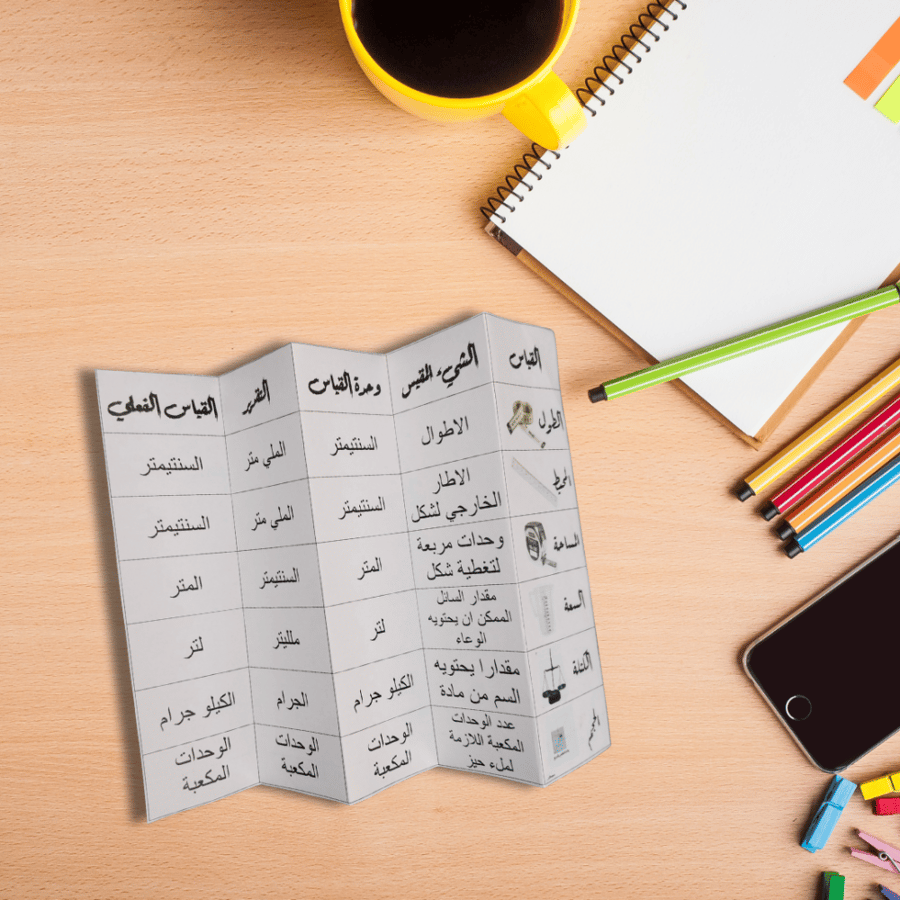 القياس
الشيء المقيس
وحدة القياس
التقدير
القياس الفعلي
الطول
الاطوال
السنتيمتر
الملي متر
السنتيمتر
المحيط
الاطار
الخارجي لشكل
السنتيمتر
الملي متر
السنتيمتر
المساحة
وحدات مربعة
لتغطية شكل
المتر
السنتيمتر
المتر
السعة
مقدار السائل
الممكن ان يحتويه
الوعاء
لتر
ملليتر
لتر
الكتلة
مقدارا يحتويه
السم من مادة
الكيلو جرام
الجرام
الكيلو جرام
عدد الوحدات
المكعبة اللازمة
لملء حيز
الوحدات
المكعبة
الوحدات
المكعبة
الوحدات
المكعبة